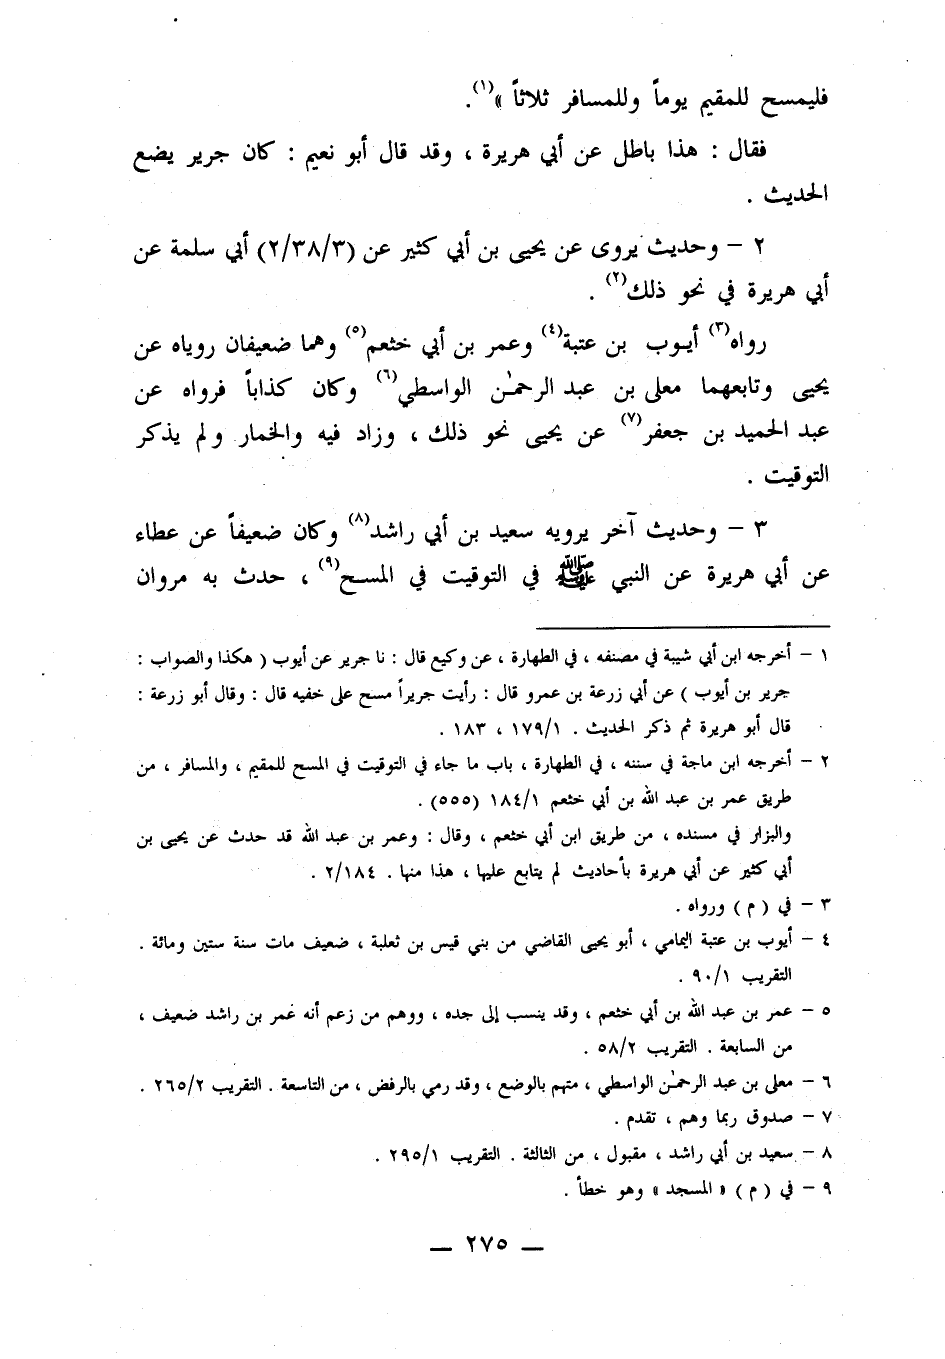 فليمسح للمقيم يوماً وللمسافر ثلاثاً »(١).
فقال : هذا باطل عن أبي هريرة ، وقد قال أبو نعيم : كان جرير يضع
الحديث .
٢ – وحديث يروى عن يحيى بن أبي كثير عن (٢/٣٨/٣) أبي سلمة عن
أبي هريرة في نحو ذلك(٢) .
رواه(٣) أيـوب بن عتبة(٤) وعمر بن أبي خثعم(٥) وهما ضعيفان روياه عن
يحيى وتابعهما معلى بن عبد الرحمٰن الواسطي(٦) وكان كذاباً فرواه عن
عبد الحميد بن جعفر(٧) عن يحيى نحو ذلك ، وزاد فيه والخمار ولم يذكر
التوقيت .
٣ – وحديث آخر يرويه سعيد بن أبي راشد(٨) وكان ضعيفاً عن عطاء
عن أبي هريرة عن النبي ﷺ في التوقيت في المسح(٩) ، حدث به مروان
١ – أخرجه ابن أبي شيبة في مصنفه ، في الطهارة ، عن وكيع قال : نا جرير عن أيوب ( هكذا والصواب :
جرير بن أيوب ) عن أبي زرعة بن عمرو قال : رأيت جريراً مسح على خفيه قال : وقال أبو زرعة :
قال أبو هريرة ثم ذكر الحديث . ١٧٩/١ ، ١٨٣ .
٢ – أخرجه ابن ماجة في سننه ، في الطهارة ، باب ما جاء في التوقيت في المسح للمقيم ، والمسافر ، من
طريق عمر بن عبد الله بن أبي خثعم ١٨٤/١ (٥٥٥) .
والبزار في مسنده ، من طريق ابن أبي خثعم ، وقال : وعمر بن عبد الله قد حدث عن يحيى بن
أبي كثير عن أبي هريرة بأحاديث لم يتابع عليها ، هذا منها . ٢/١٨٤ .
٣ – في ( م ) ورواه .
٤ – أيوب بن عتبة اليمامي ، أبو يحيى القاضي من بني قيس بن ثعلبة ، ضعيف مات سنة ستين ومائة .
التقريب ٩٠/١ .
٥ – عمر بن عبد الله بن أبي خثعم ، وقد ينسب إلى جده ، ووهم من زعم أنه عمر بن راشد ضعيف ،
من السابعة . التقريب ٥٨/٢ .
٦ – معلى بن عبد الرحمٰن الواسطي ، متهم بالوضع ، وقد رمي بالرفض ، من التاسعة . التقريب ٢٦٥/٢ .
٧ – صدوق ربما وهم ، تقدم .
٨ – سعيد بن أبي راشد ، مقبول ، من الثالثة . التقريب ٢٩٥/١ .
٩ – في ( م ) « المسجد » وهو خطأ .
— ٢٧٥ —